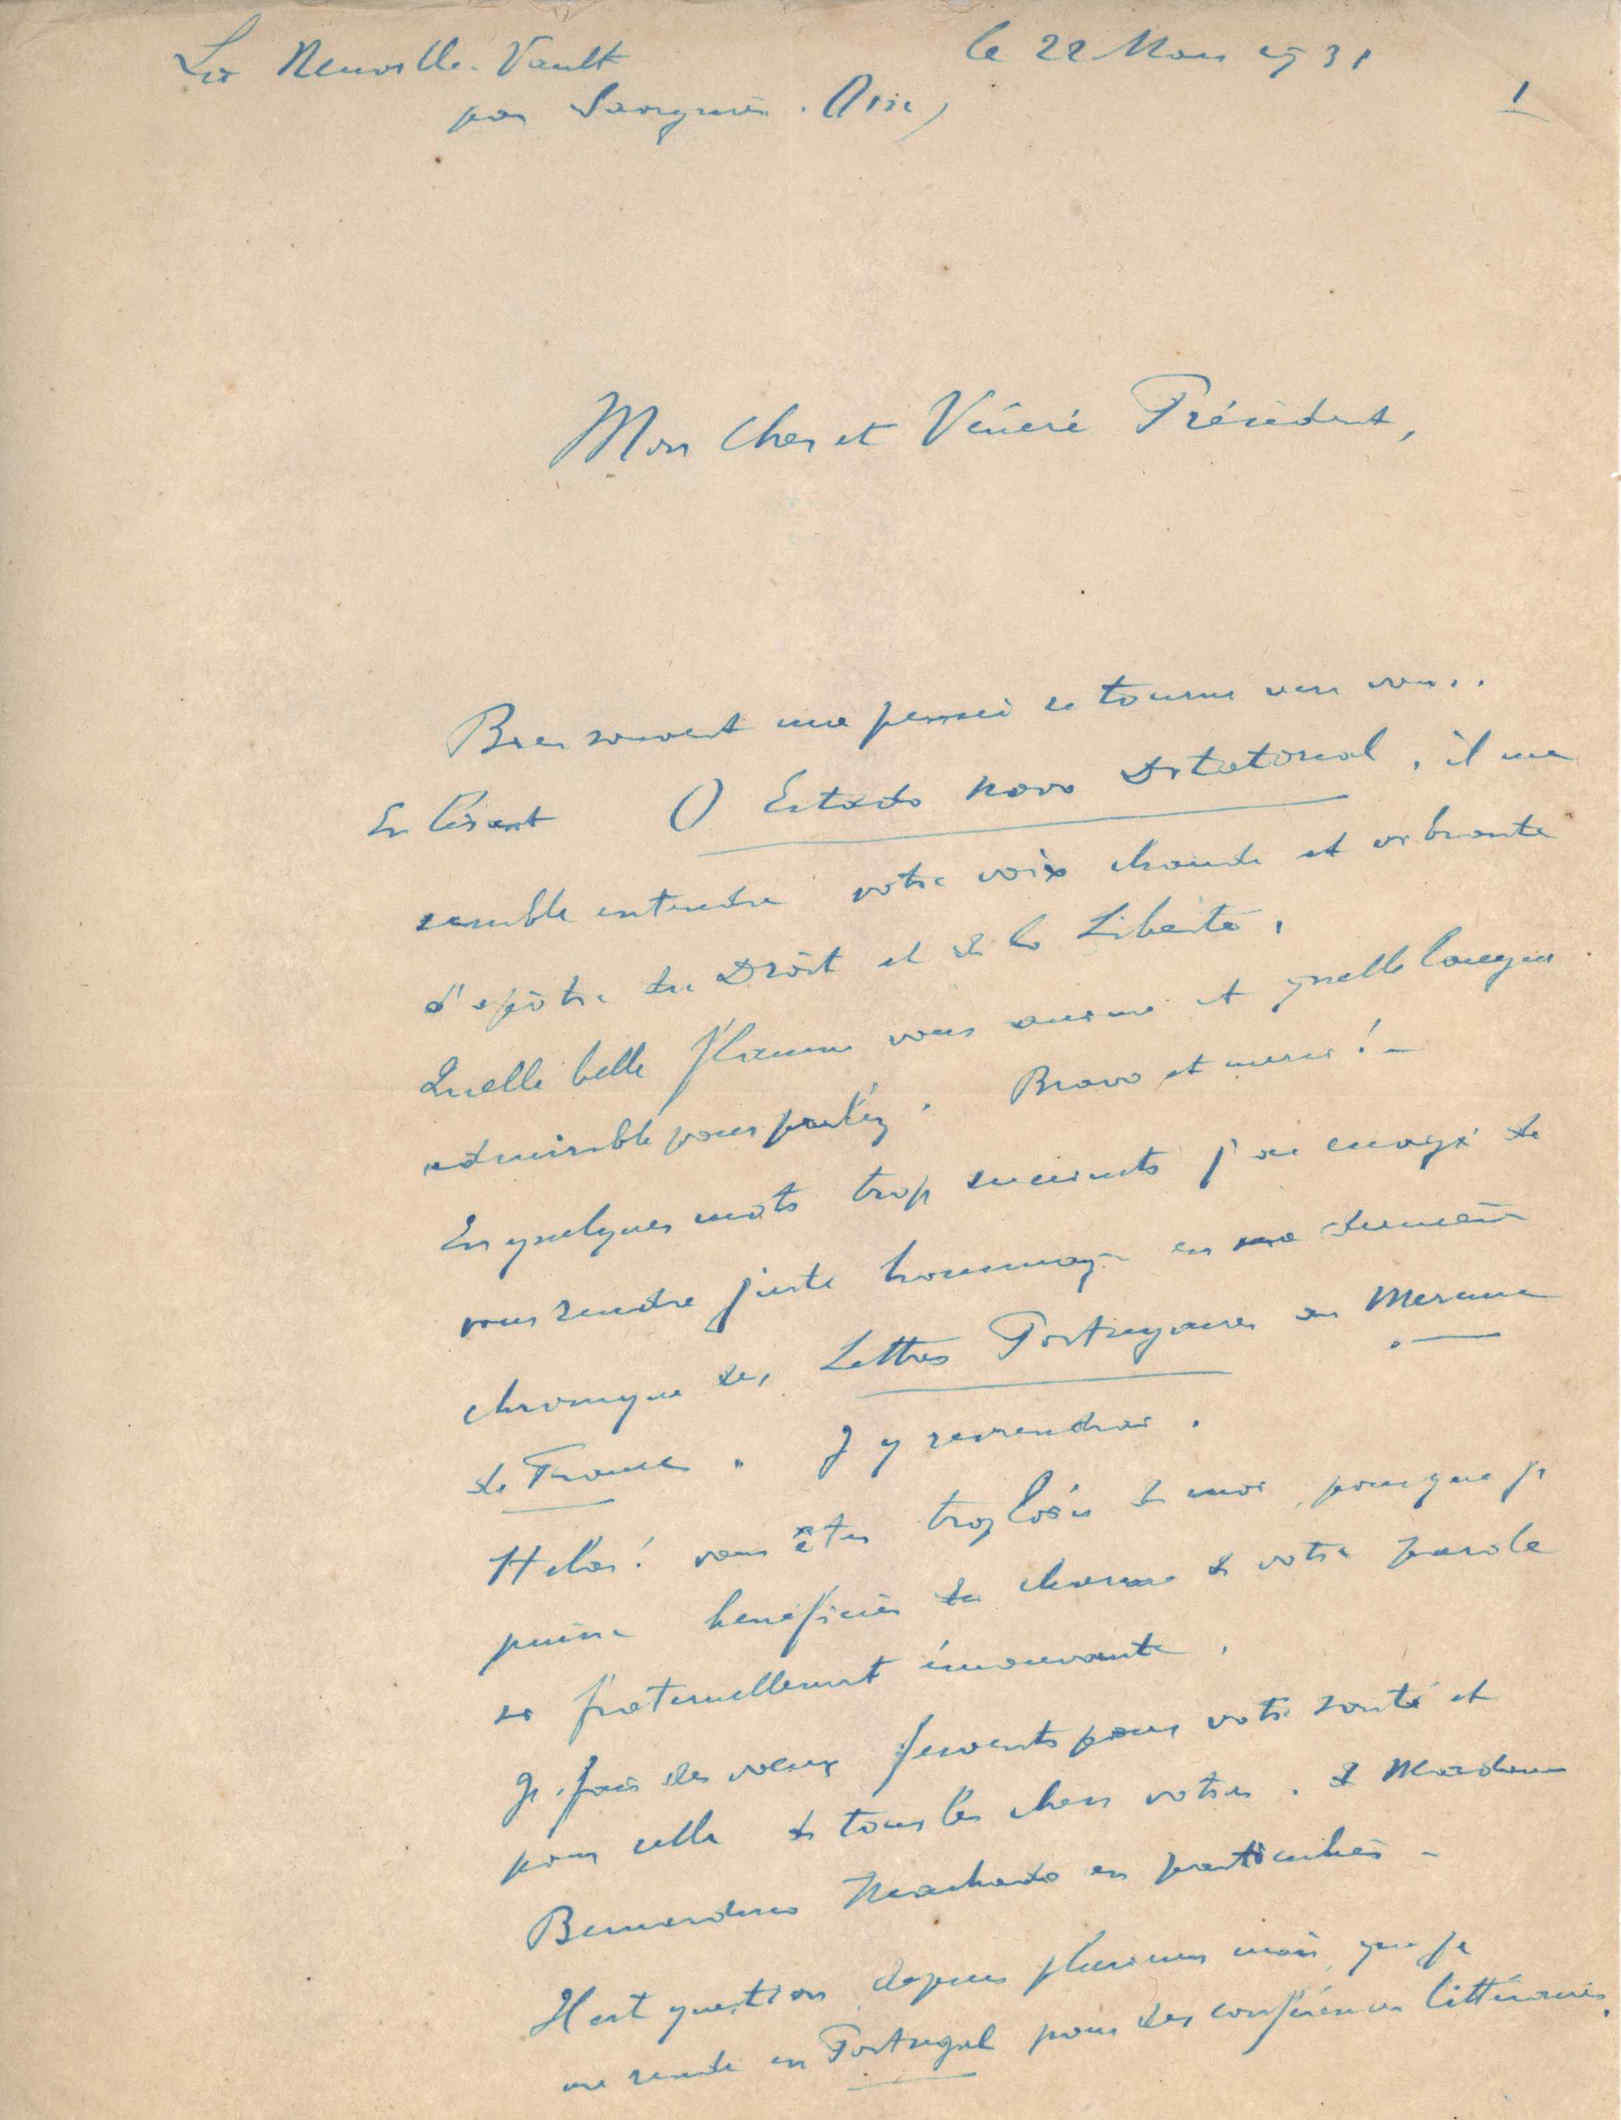 La Neuville-Vault le 22 Mars 1931
par Savignies. Oise, 1
Mon Cher et Vénéré Président,
Bien souvent ma pensée se tourne vers vous.
En lisant O Estado novo Ditatorial, il me
semble entendre votre voix chaude et vibrante
d'apôtre du Droit et de la Liberté.
Quelle belle flamme vous anime et quelle langue
admirable vous parlez. Bravo et merci ! -
En quelques mots trop succincts j'ai essayé de
vous rendre juste hommage en ma dernière
chronique des Lettres Portugaises au Mercure
de France. J'y reviendrai.
Hélas ! vous êtes trop loin de moi, pour que je
puisse bénéficier du charme de votre parole
si fraternellement émouvante.
Je fais des vœux fervents pour votre santé et
pour celle de tous les chers vôtres. de Madame
Bernardino Machado en particulier -
Il est question, depuis plusieurs mois, que je
me rende en Portugal pour des conférences littéraires.